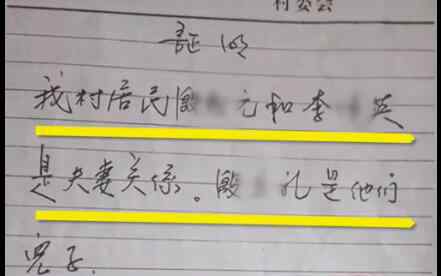 村委会
证明
我村居民殷 元和李 英
是夫妻关係。殷 礼是他们
儿子.